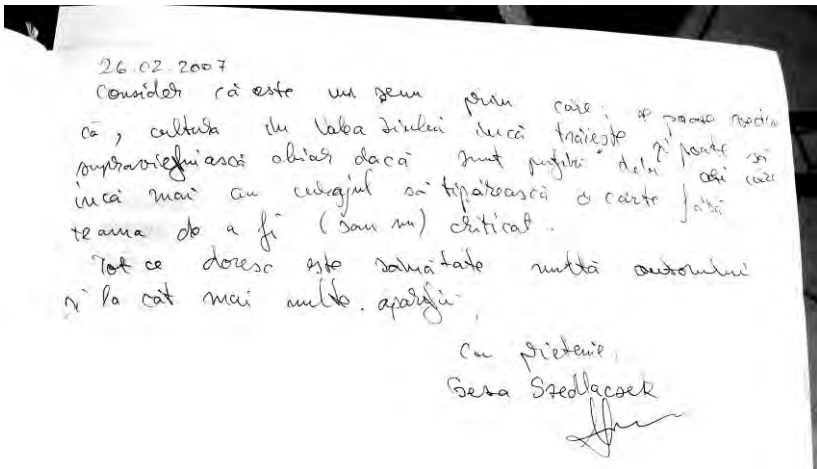 26.02.2007
Consider că este un semn prin care: se poate
că, cultura în Valea Jiului încă trăiește și poate să
supraviețuiască chiar dacă sunt puțini cei care
încă mai au curajul să tipărească o carte fără
teama de a fi (sau nu) criticat.
Tot ce doresc este sănătate multă autorului
și la cât mai multe apariții.
Cu prietenie,
Geza Szedlacsek